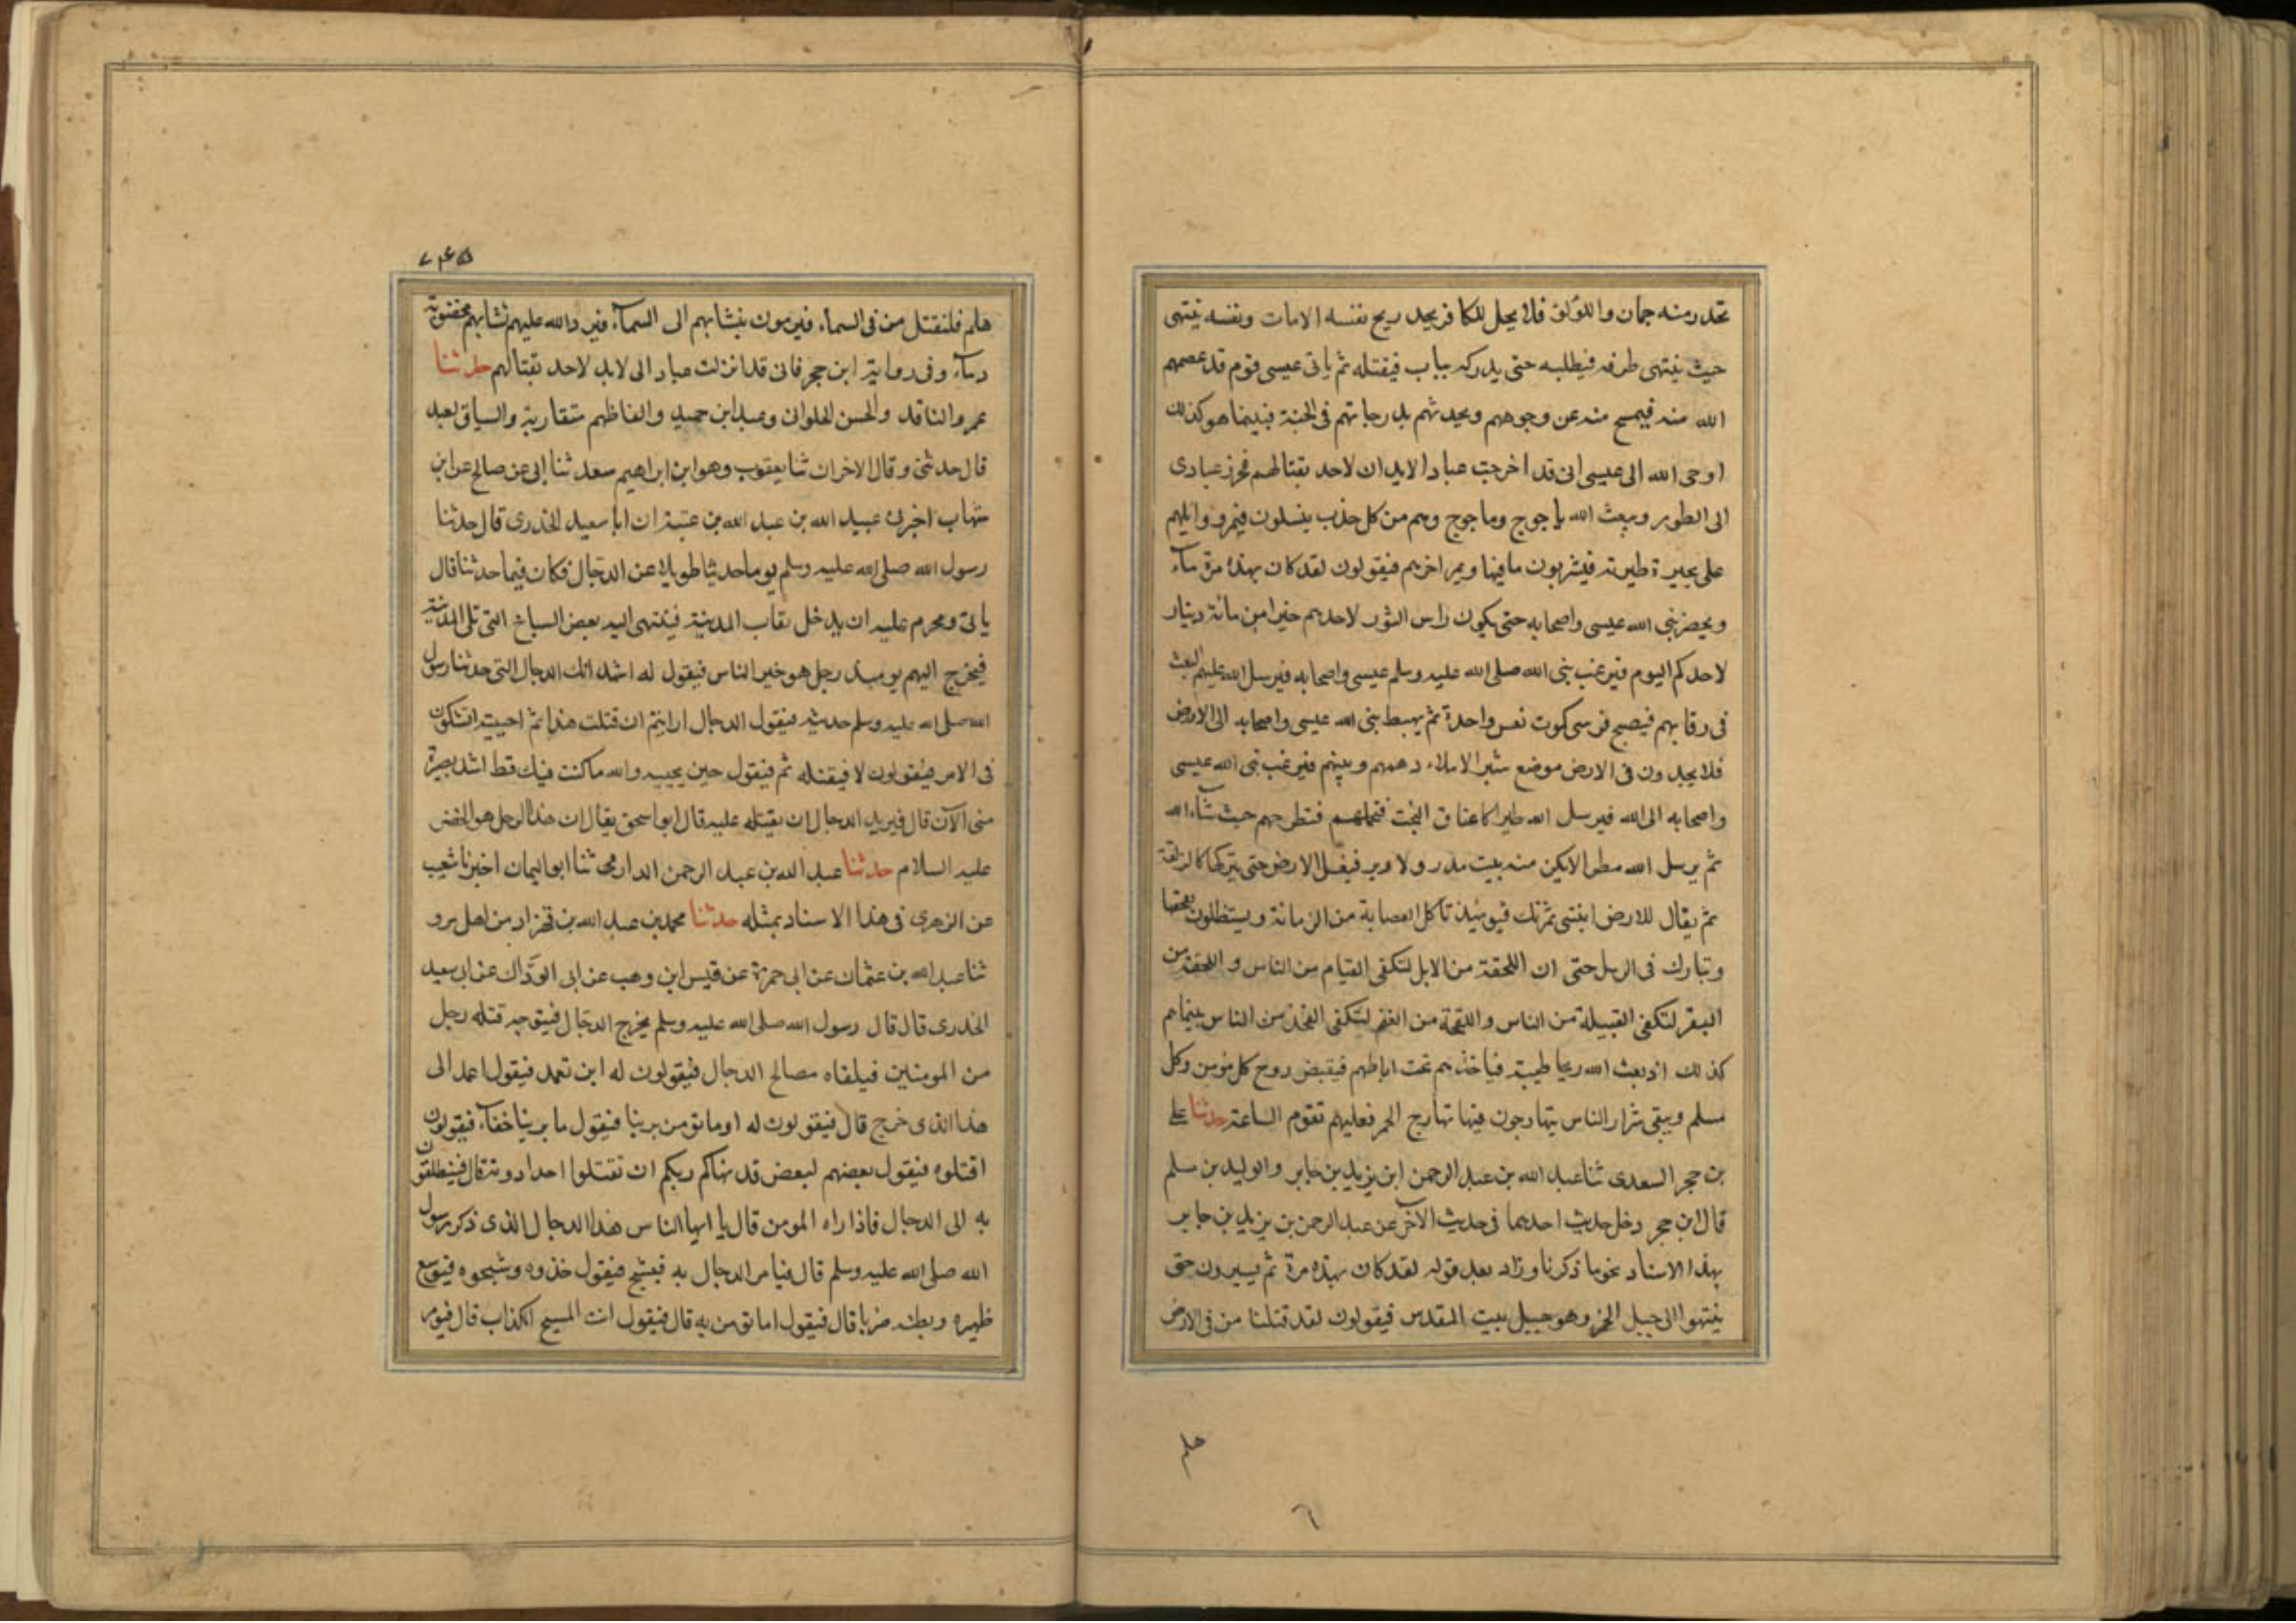 تحدر منه جمان واللؤلؤ فلا يحل لكافر يجد ريح نفسه الامات ونفسه ينتهى
حيث ينتهى طرفه فيطلبه حتى يدركه بباب فيقتله ثم ياتى عيسى قوم قد عصمهم
الله منه فيمسح منه عن وجوههم ويحدثهم بدرجاتهم فى الجنة فبينما هو كذلك
اوحى الله الى عيسى انى قد اخرجت عبادا لايدان لاحد بقتالهم فحرز عبادى
الى الطور ويبعث الله ياجوج وماجوج وهم من كل حدب ينسلون فيمر اوائلهم
على بحيرة طبرية فيشربون ما فيها ويمر اخرهم فيقولون لقد كان بهذه مرة ماء
ويحصر نبى الله عيسى واصحابه حتى يكون راس الثور لاحدهم خيرا من مائة دينار
لاحدكم اليوم فيرغب نبى الله صلى الله عليه وسلم عيسى واصحابه فيرسل الله عليهم
فى رقابهم فيصبح فرسى كموت نفس واحدة ثم يهبط نبى الله عيسى واصحابه الى الارض
فلا يجدون فى الارض موضع شبر الا ملاء زهمهم ونتنهم فيرغب نبى الله عيسى
واصحابه الى الله فيرسل الله طيرا كاعناق البخت فتحملهم فتطرحهم حيث شاء الله
ثم يرسل الله مطرا لايكن منه بيت مدر ولا وبر فيغسل الارض حتى يتركها كالزلقة
ثم يقال للارض انبتى ثمرتك فيومئذ تاكل العصابة من الرمانة ويستظلون بقحفها
وتبارك فى الرسل حتى ان اللقحة من الابل لتكفى الفيام من الناس واللقحة من
البقر لتكفى القبيلة من الناس واللقحة من الغنم لتكفى الفخذ من الناس بينما هم
كذلك اذ بعث الله ريحا طيبة فياخذهم تحت اباطهم فيقبض روح كل مومن وكل
مسلم ويبقى شرار الناس يتهارجون فيها تهارج الحمر فعليهم تقوم الساعة حدثنا على
بن حجر السعدى ثنا عبد الله بن عبد الرحمن ابن يزيد بن جابر والوليد بن مسلم
قال ابن حجر دخل حديث احدهما فى حديث الآخر عن عبد الرحمن بن يزيد بن جابر
بهذا الاسناد نحو ما ذكرنا وزاد بعد قوله لقد كان بهذه مرة ثم يسيرون حتى
ينتهوا الى جبل الخمر وهو جبل بيت المقدس فيقولون لقد قتلنا من فى الارض
هلم
٦
٧٤٥
هلم فلنقتل من فى السماء فيرمون بنشابهم الى السماء فيرد الله عليهم نشابهم مخضوبة
دماء وفى رواية ابن حجر فانى قد انزلت عبادا لى لايد لاحد بقتالهم حدثنا
عمرو الناقد والحسن الحلوانى وعبد ابن حميد والفاظهم متقاربة والسياق لعبد
قال حدثنى وقال الاخران ثنا يعقوب وهو ابن ابراهيم سعد ثنا ابى عن صالح عن ابن
شهاب اخبرنى عبيد الله بن عبد الله بن عتبة ان ابا سعيد الخدرى قال حدثنا
رسول الله صلى الله عليه وسلم يوما حديثا طويلا عن الدجال فكان فيما حدثنا قال
ياتى ومحرم عليه ان يدخل نقاب المدينة فينتهى اليه بعض السباخ التى تلى المدينة
فيخرج اليهم يومئذ رجل هو خير الناس فيقول له اشهد انك الدجال التى حدثنا رسول
الله صلى الله عليه وسلم حديثه فيقول الدجال ارايتم ان قتلت هذا ثم احييته اتشكون
فى الامر فيقولون لا فيقتله ثم فيقول حين يحييه والله ما كنت فيك قط اشد بصيرة
منى الآن قال فيريد الدجال ان يقتله عليه قال ابو اسحق يقال ان هذا الرجل هو الخضر
عليه السلام حدثنا عبد الله بن عبد الرحمن الدارمى ثنا ابو اليمان اخبرنا شعيب
عن الزهرى فى هذا الاسناد بمثله حدثنا محمد بن عبد الله بن قهزاد من اهل مرو
ثنا عبد الله بن عثمان عن ابى حمزة عن قيس ابن وهب عن ابى الودّاك عن ابى سعيد
الخدرى قال قال رسول الله صلى الله عليه وسلم يخرج الدجال فيتوجه قتله رجل
من المومنين فيلقاه مصالح الدجال فيقولون له اين تعمد فيقول اعمد الى
هذا الذى خرج قال فيقولون له اوما تومن بربنا فيقول ما بربنا خفاء فيقولون
اقتلوه فيقول بعضهم لبعض قد نهاكم ربكم ان تقتلوا احدا دونه قال فينطلقون
به الى الدجال فاذا راه المومن قال يا ايها الناس هذا الدجال الذى ذكر رسول
الله صلى الله عليه وسلم قال فيامر الدجال به فيشبح فيقول خذوه وشبحوه فيوسع
ظهره وبطنه ضربا قال فيقول اما تومن به قال فيقول انت المسيح الكذاب قال فيومر